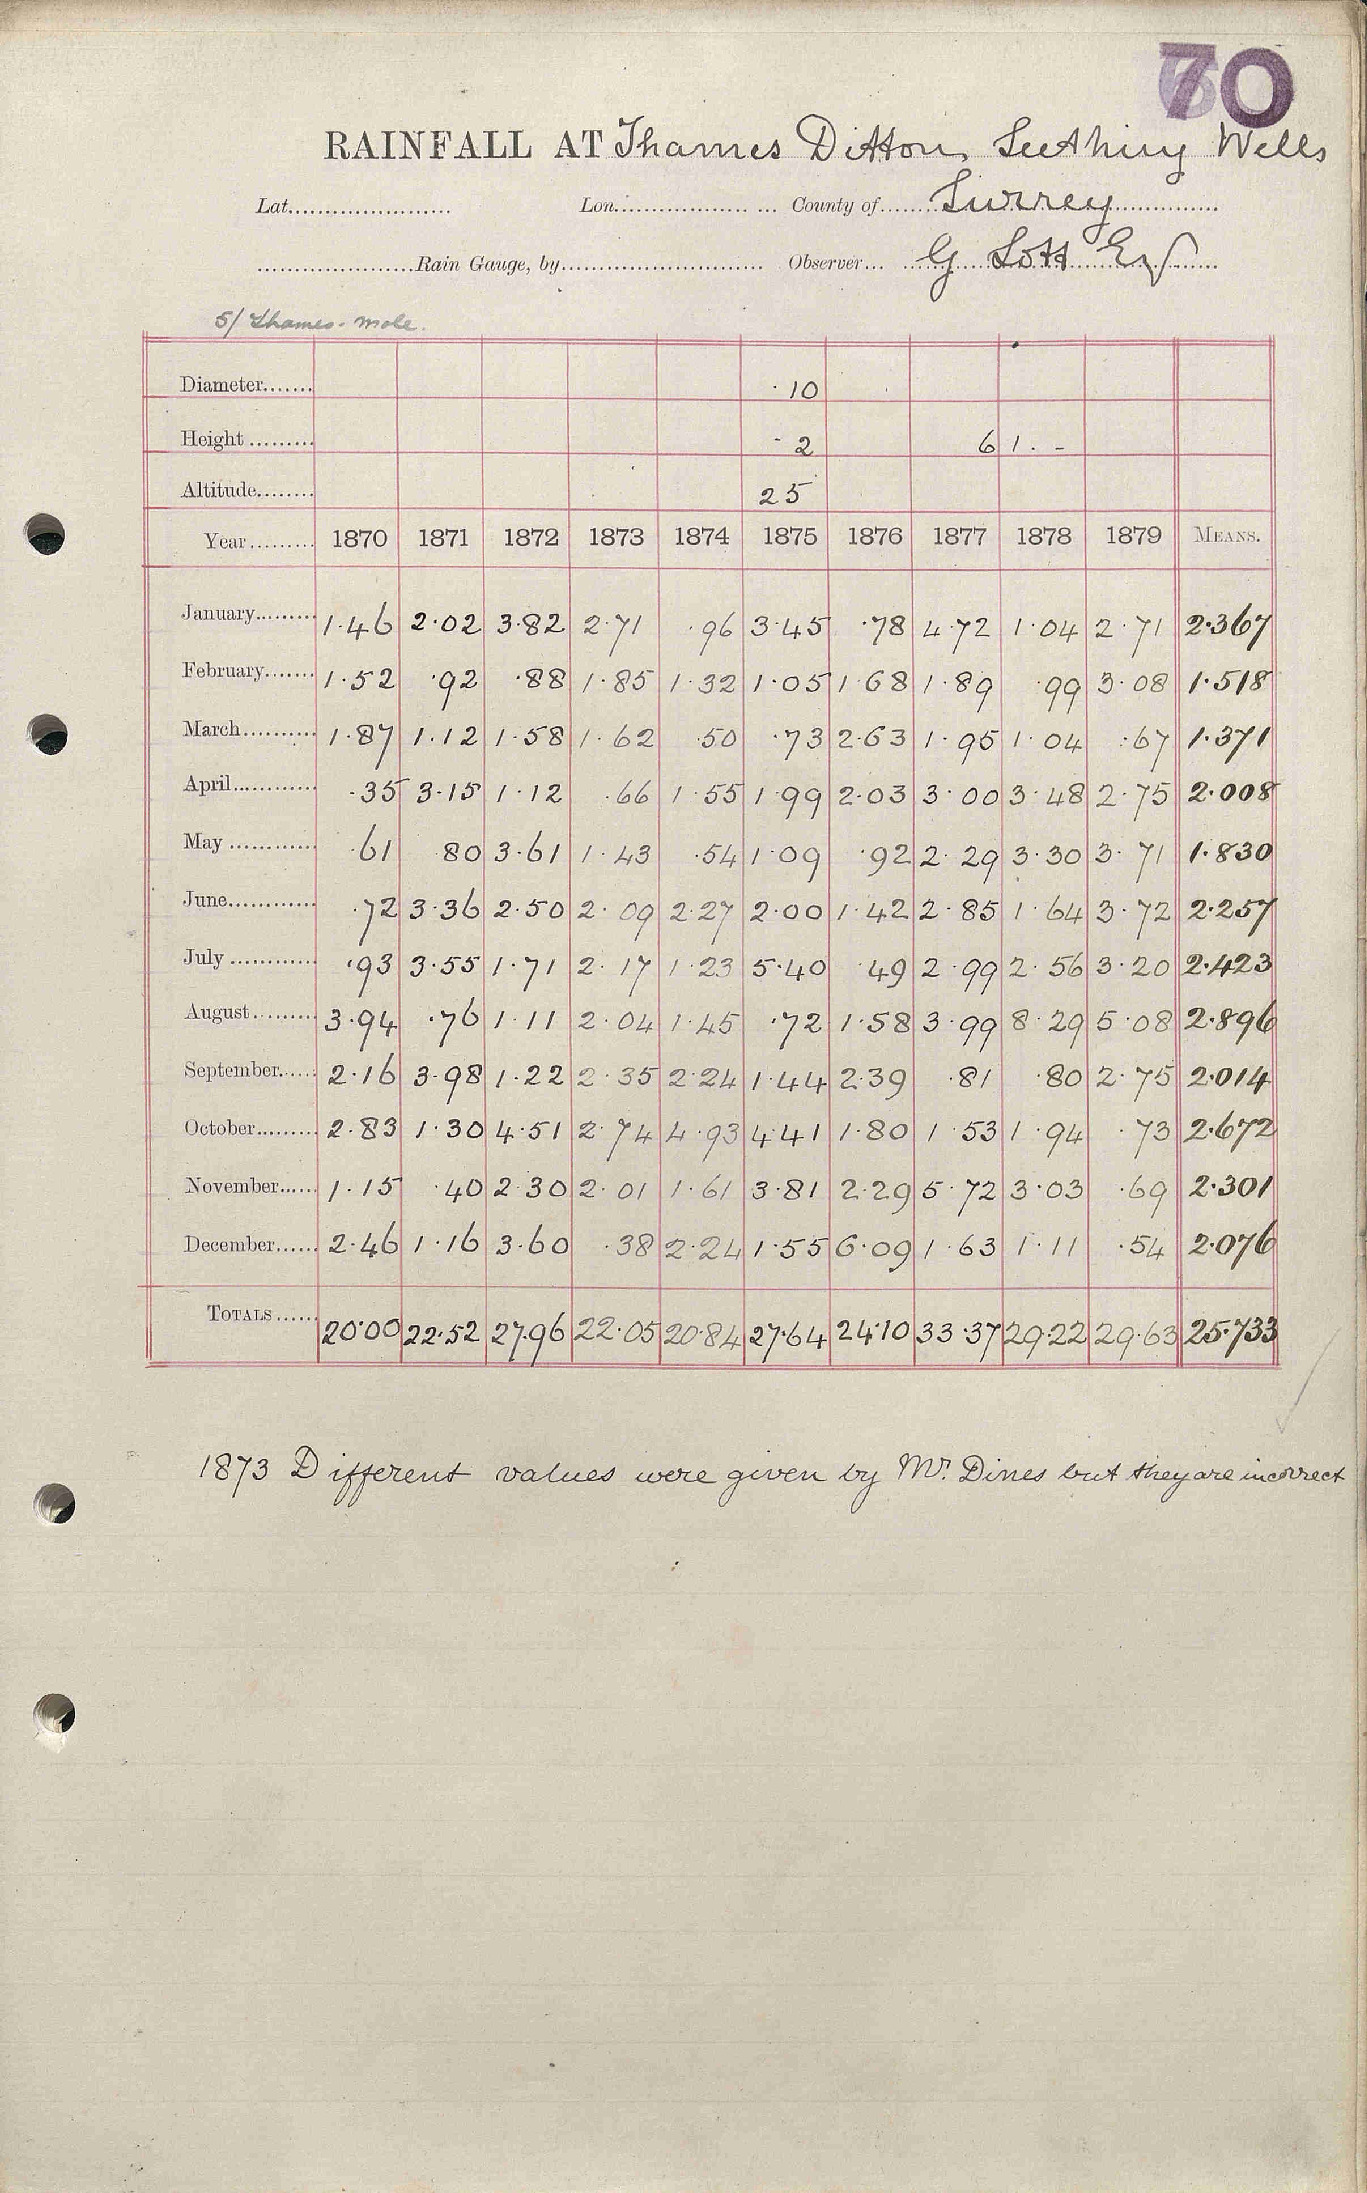 70
RAINFALL AT Thames Ditton, Seething Wells
Lat. Lon. County of Surrey
Rain Gauge, by Observer G Lott Esq
5/ Thames - Mole.
Diameter ·10
Height ·2 6 1 . -
Altitude 25
Year 1870 1871 1872 1873 1874 1875 1876 1877 1878 1879 MEANS.
January 1·46 2·02 3·82 2·71 ·96 3·45 ·78 4·72 1·04 2·71 2·367
February 1·52 ·92 ·88 1·85 1·32 1·05 1·68 1·89 ·99 3·08 1·518
March 1·87 1·12 1·58 1·62 ·50 ·73 2·63 1·95 1·04 ·67 1·371
April ·35 3·15 1·12 ·66 1·55 1·99 2·03 3·00 3·48 2·75 2·008
May ·61 ·80 3·61 1·43 ·54 1·09 ·92 2·29 3·30 3·71 1·830
June ·72 3·36 2·50 2·09 2·27 2·00 1·42 2·85 1·64 3·72 2·257
July ·93 3·55 1·71 2·17 1·23 5·40 ·49 2·99 2·56 3·20 2·423
August 3·94 ·76 1·11 2·04 1·45 ·72 1·58 3·99 8·29 5·08 2·896
September 2·16 3·98 1·22 2·35 2·24 1·44 2·39 ·81 ·80 2·75 2·014
October 2·83 1·30 4·51 2·74 4·93 4·41 1·80 1·53 1·94 ·73 2·672
November 1·15 ·40 2·30 2·01 1·61 3·81 2·29 5·72 3·03 ·69 2·301
December 2·46 1·16 3·60 ·38 2·24 1·55 6·09 1·63 1·11 ·54 2·076
TOTALS 20·00 22·52 27·96 22·05 20·84 27·64 24·10 33·37 29·22 29·63 25·733
1873 Different values were given by Mr. Dines but they are incorrect